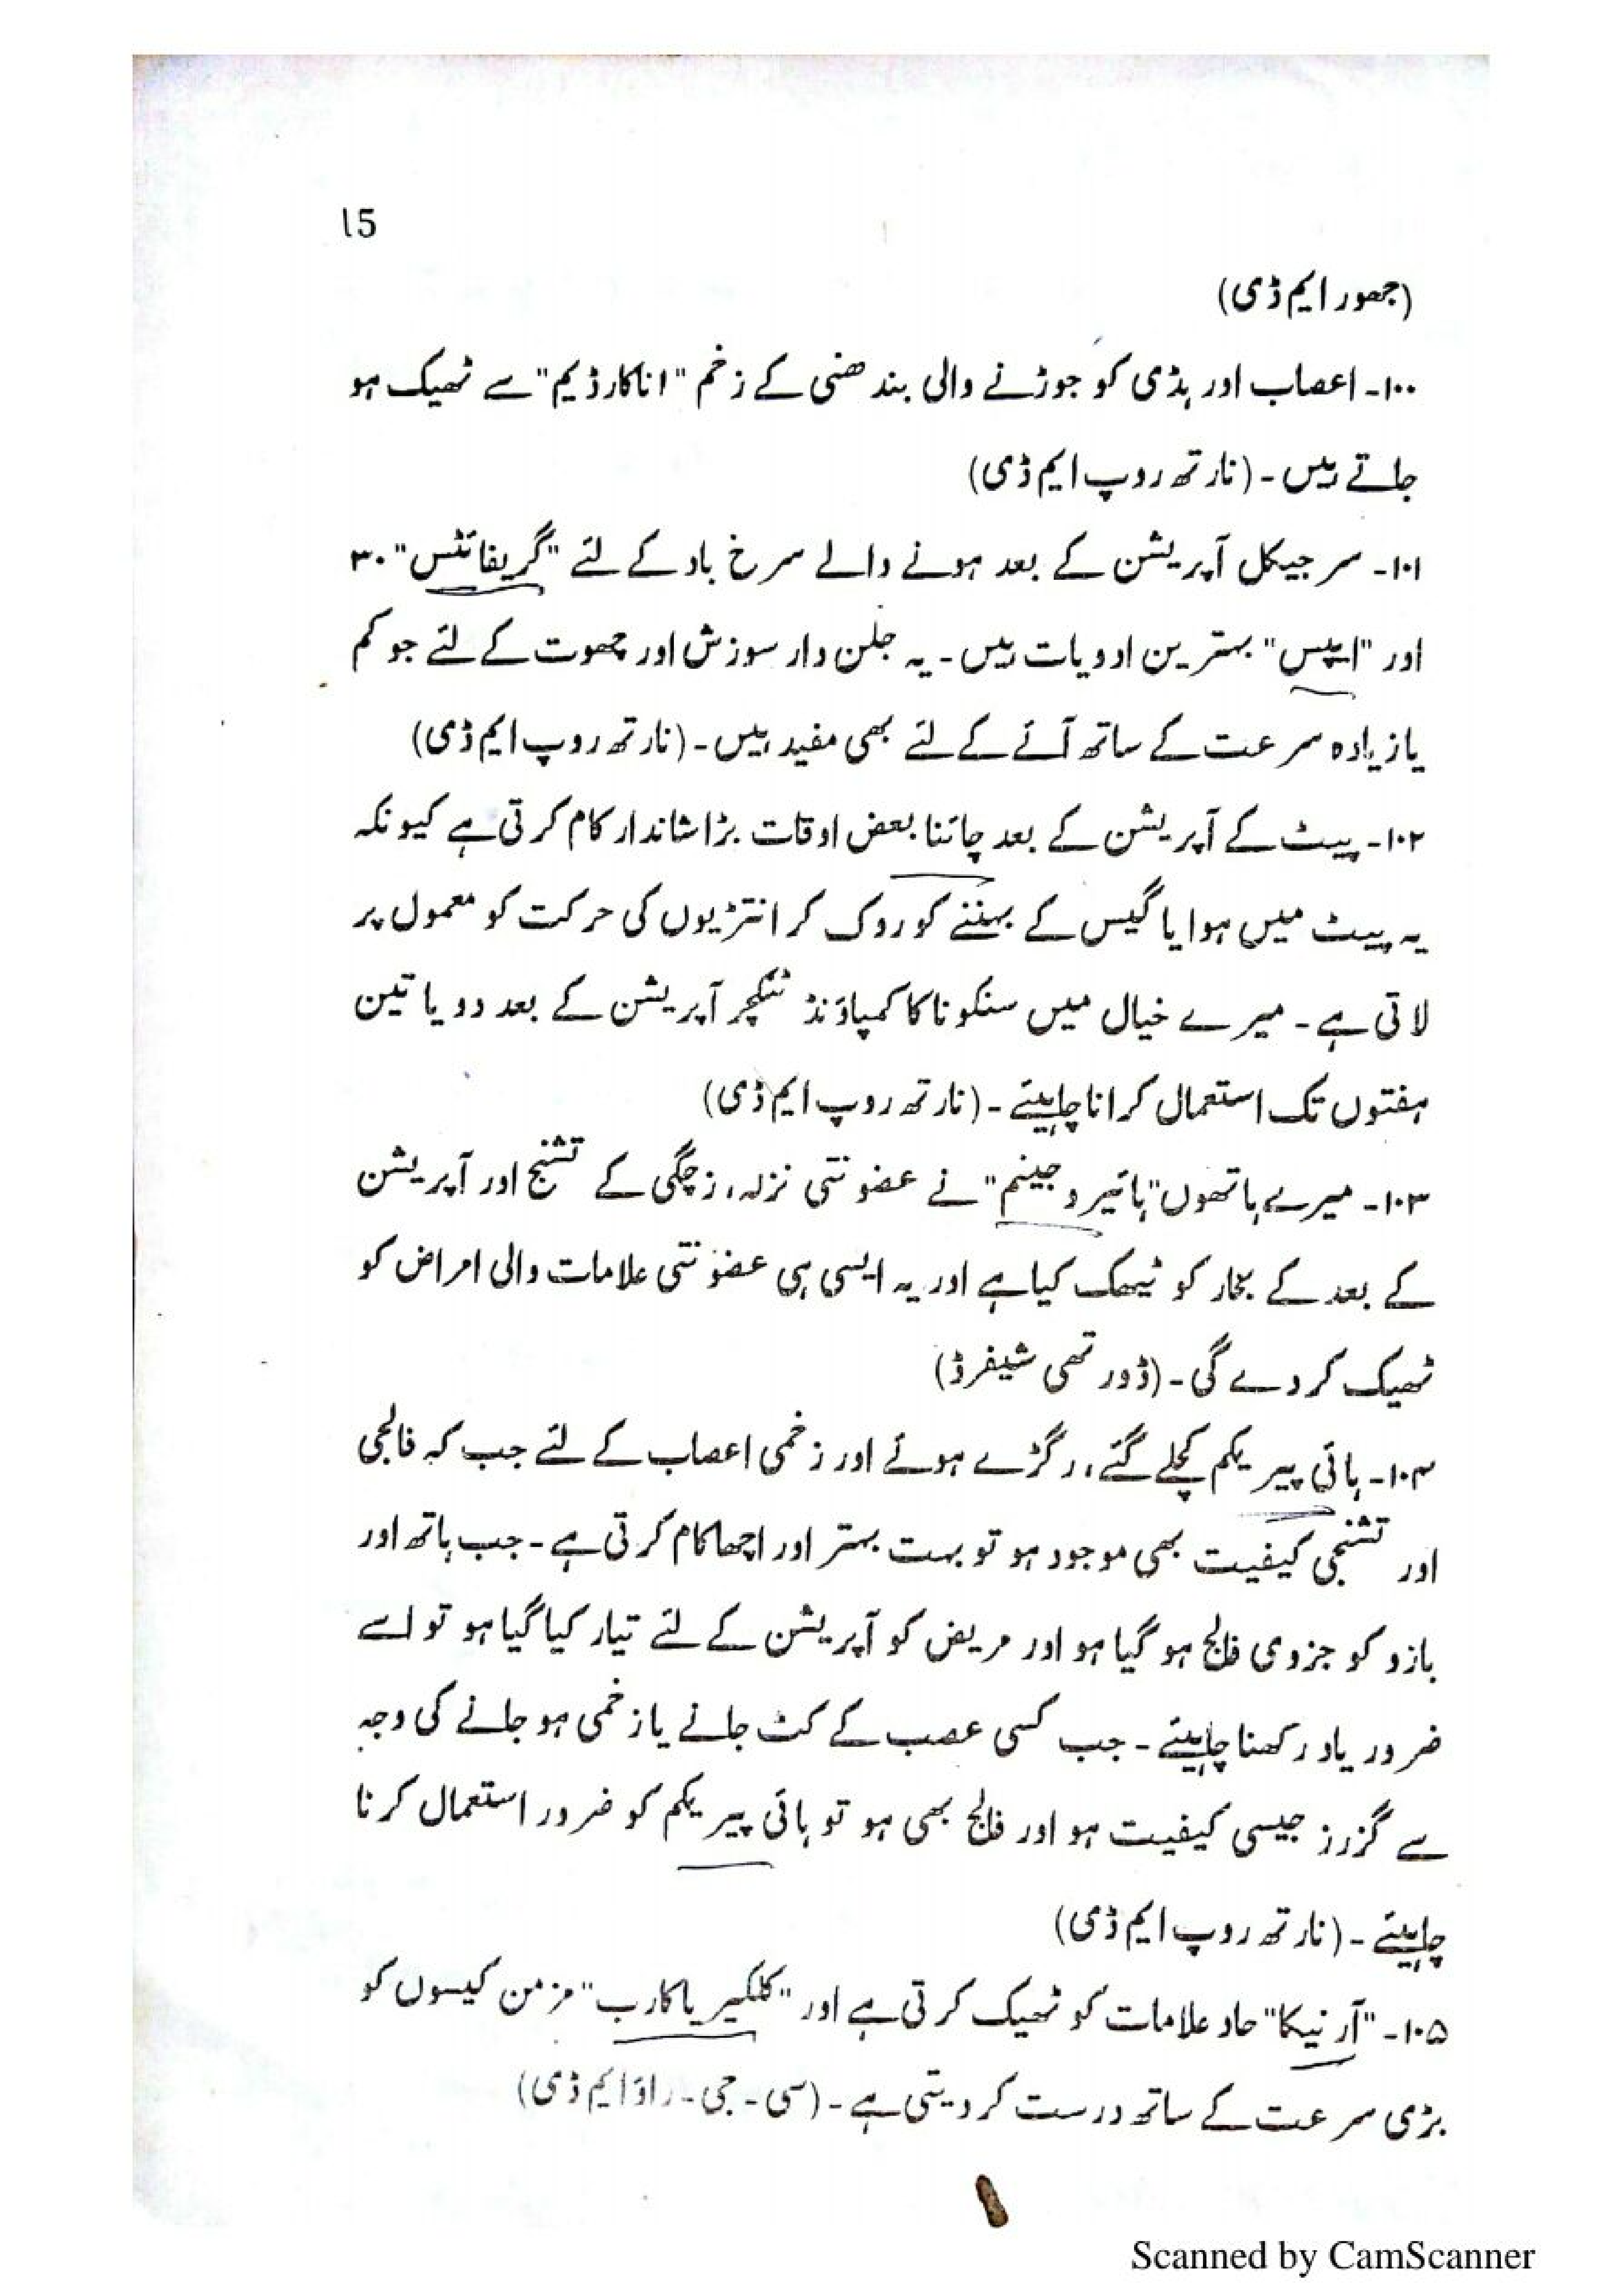 15
(جھور ایم ڈی)
۱۰۰۔ اعصاب اور ہڈی کو جوڑنے والی بندھنی کے زخم "اناکارڈیم" سے ٹھیک ہو
جاتے ہیں۔ (نارتھ روپ ایم ڈی)
۱۰۱۔ سرجیکل آپریشن کے بعد ہونے والے سرخ باد کے لئے "گریفائٹس" ۳۰
اور "ایپس" بہترین ادویات ہیں۔ یہ جلن دار سوزش اور چھوت کے لئے جو کم
یا زیادہ سرعت کے ساتھ آئے کے لئے بھی مفید ہیں۔ (نارتھ روپ ایم ڈی)
۱۰۲۔ پیٹ کے آپریشن کے بعد چائنا بعض اوقات بڑا شاندار کام کرتی ہے کیونکہ
یہ پیٹ میں ہوا یا گیس کے بہننے کو روک کر انتڑیوں کی حرکت کو معمول پر
لاتی ہے۔ میرے خیال میں سنکونا کا کمپاؤنڈ ٹنکچر آپریشن کے بعد دو یا تین
ہفتوں تک استعمال کرانا چاہیئے۔ (نارتھ روپ ایم ڈی)
۱۰۳۔ میرے ہاتھوں "پائیروجینم" نے عضونتی نزلہ، زچگی کے تشنج اور آپریشن
کے بعد کے بخار کو ٹیھک کیا ہے اور یہ ایسی ہی عضونتی علامات والی امراض کو
ٹھیک کر دے گی۔ (ڈورتھی شیفرڈ)
۱۰۴۔ ہائی پیریکم کچلے گئے، رگڑے ہوئے اور زخمی اعصاب کے لئے جب کہ فالجی
اور تشنجی کیفیت بھی موجود ہو تو بہت بہتر اور اچھا کام کرتی ہے۔ جب ہاتھ اور
بازو کو جزوی فالج ہو گیا ہو اور مریض کو آپریشن کے لئے تیار کیا گیا ہو تو اسے
ضرور یاد رکھنا چاہیئے۔ جب کسی عصب کے کٹ جانے یا زخمی ہو جانے کی وجہ
سے گزرز جیسی کیفیت ہو اور فالج بھی ہو تو ہائی پیریکم کو ضرور استعمال کرنا
چاہیئے۔ (نارتھ روپ ایم ڈی)
۱۰۵۔ "آرنیکا" حاد علامات کو ٹھیک کرتی ہے اور "کلکیریا کارب" مزمن کیسوں کو
بڑی سرعت کے ساتھ درست کر دیتی ہے۔ (سی۔ جی۔ راؤ ایم ڈی)
Scanned by CamScanner